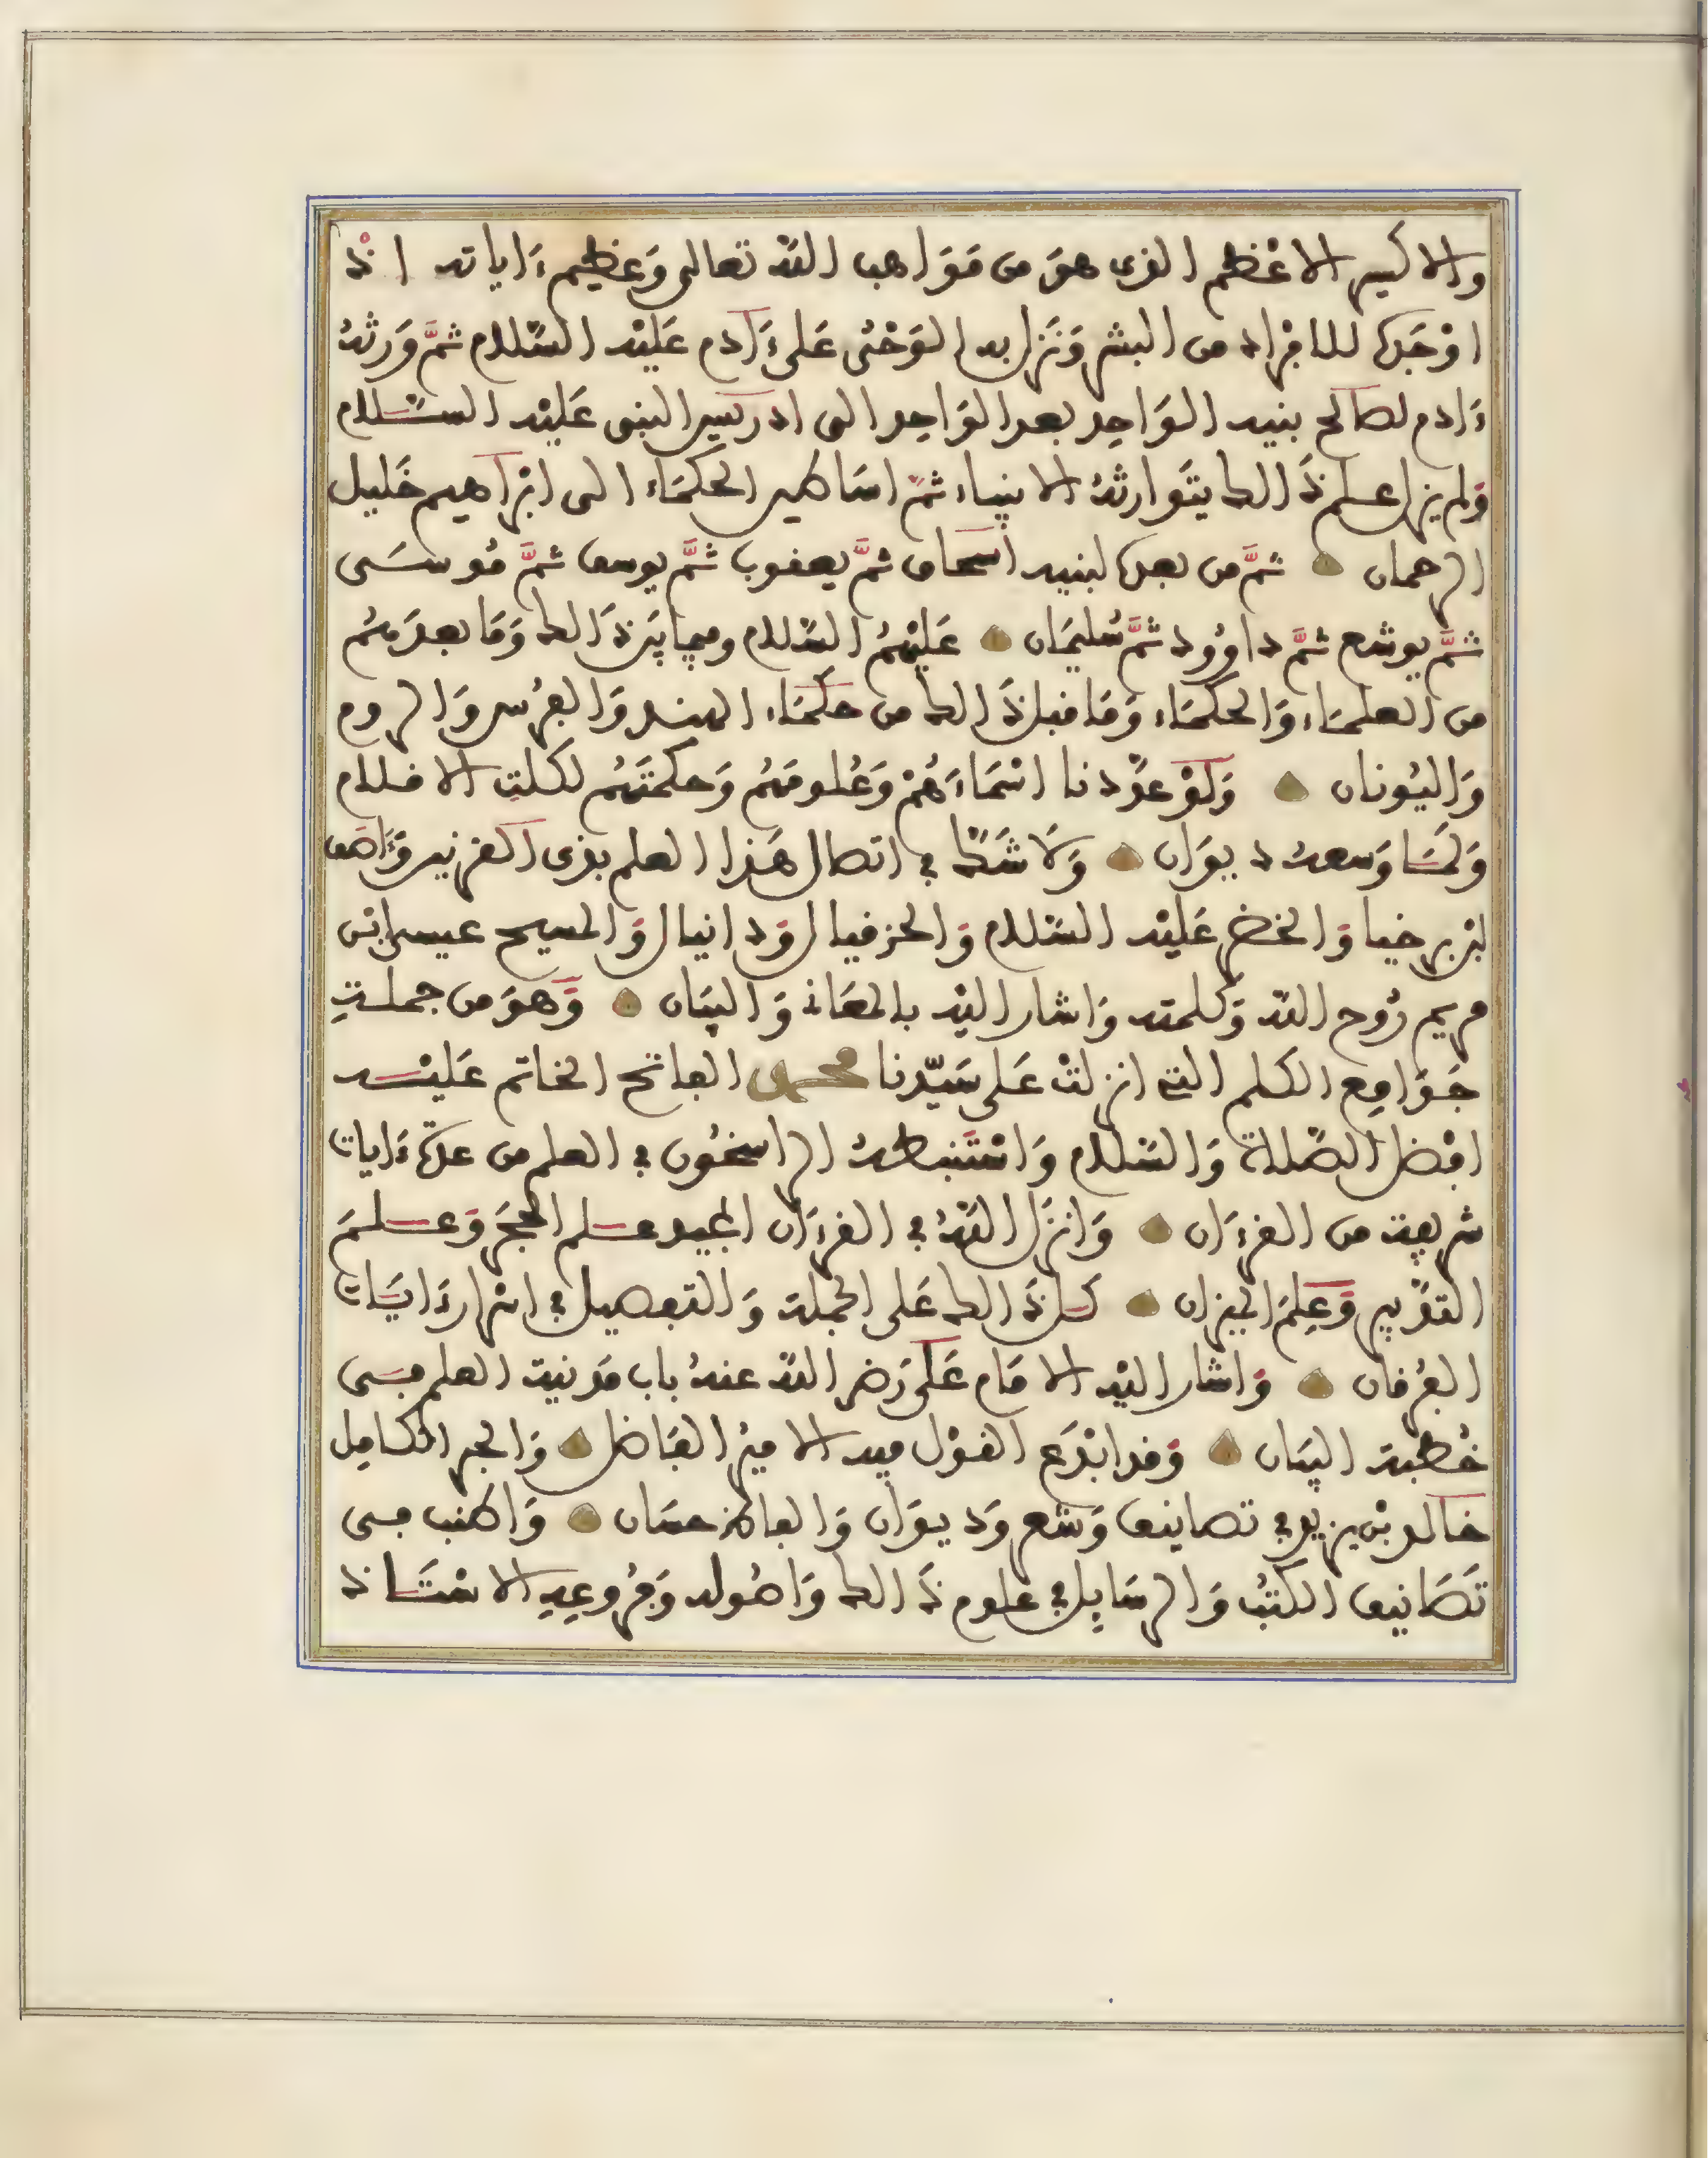 والاكسير الاعْظم الذى هوَ من مَوَاهب اللّه تعالى وَعظيم ءَاياته اذْ
اوْجَدَهُ للافْراد من البشر وَنَزل به الوَحْىُ عَلى ءَادم عَليْه السّلام ثمَّ وَرثهُ
ءَادم لصالح بنيه الوَاحِد بعد الوَاحِد الى ادريس النبى عَليْه السّلام
وَلم يزل علم ذَالك يتَوارثهُ الانبياء ثمّ اسَاطير الحكمَاء الى ابْرَاهيم خَليل
الرحمان ثمَّ من بعده لبنيه اسْحاق ثمَّ يعقوب ثمَّ يوسف ثمَّ مُوسَى
ثمَّ يوشع ثمَّ داوُود ثمَّ سُليمَان عَليْهمُ السّلام وفيما بَين ذَالك وَمَا بعدَهُم
من العلمَاء وَالحكمَاء وَمَا قبل ذَالك من حكَمَاء الهند وَالفُرس وَالروم
وَاليُونان وَلَوْ عدَّدنا اسْمَاءَهُمْ وَعُلومَهُم وَحكمتَهُم لكلت الاقلام
وَلمَا وَسعه ديوَان وَلَا شَكّ في اتصال هَذا العلم بذى القرنين وَءَاصف
ابْن برخيا وَالخضر عَليْه السّلام وَالحزقيال وَدانيال وَالمسيح عيسى ابْن
مريم رُوح اللّه وَكلمته وَاشار اليْه بالمعَاني وَالبيَان وَهوَ من جملتِ
جَوَامِع الكَلم التي انزلتْ عَلى سَيّدنا محمد الفاتح الخاتم عَليْه
افْضل الصّلاة وَالسّلام وَاسْتَنبطهُ الراسخُون في العلم من عدّة ءَايات
شريفة من القرءَان وَانزَل اللّهُ في القرءَان المجيد علم الحجَر وَعلمَ
التقْدير وَعِلمَ الميزان كل ذَالك عَلى الجملة وَالتفصيل في اسْرار ءَايَات
الفُرقان وَاشار اليْه الامَام عَلى رَضى اللّه عنهُ باب مَدنية العلم في
خُطبة البيَان وَقد ابْدَع القوْل فيه الاميرُ الفَاضل وَالحبر الكامِل
خالد بْن يزيد في تصانيف وَشعر وَديوَان وَالفاظ حسَان وَاطنب في
تَصَانيف الكتُب وَالرسَايل في علوم ذَالك وَاصُوله وَفُروعِهِ الاسْتَاذ